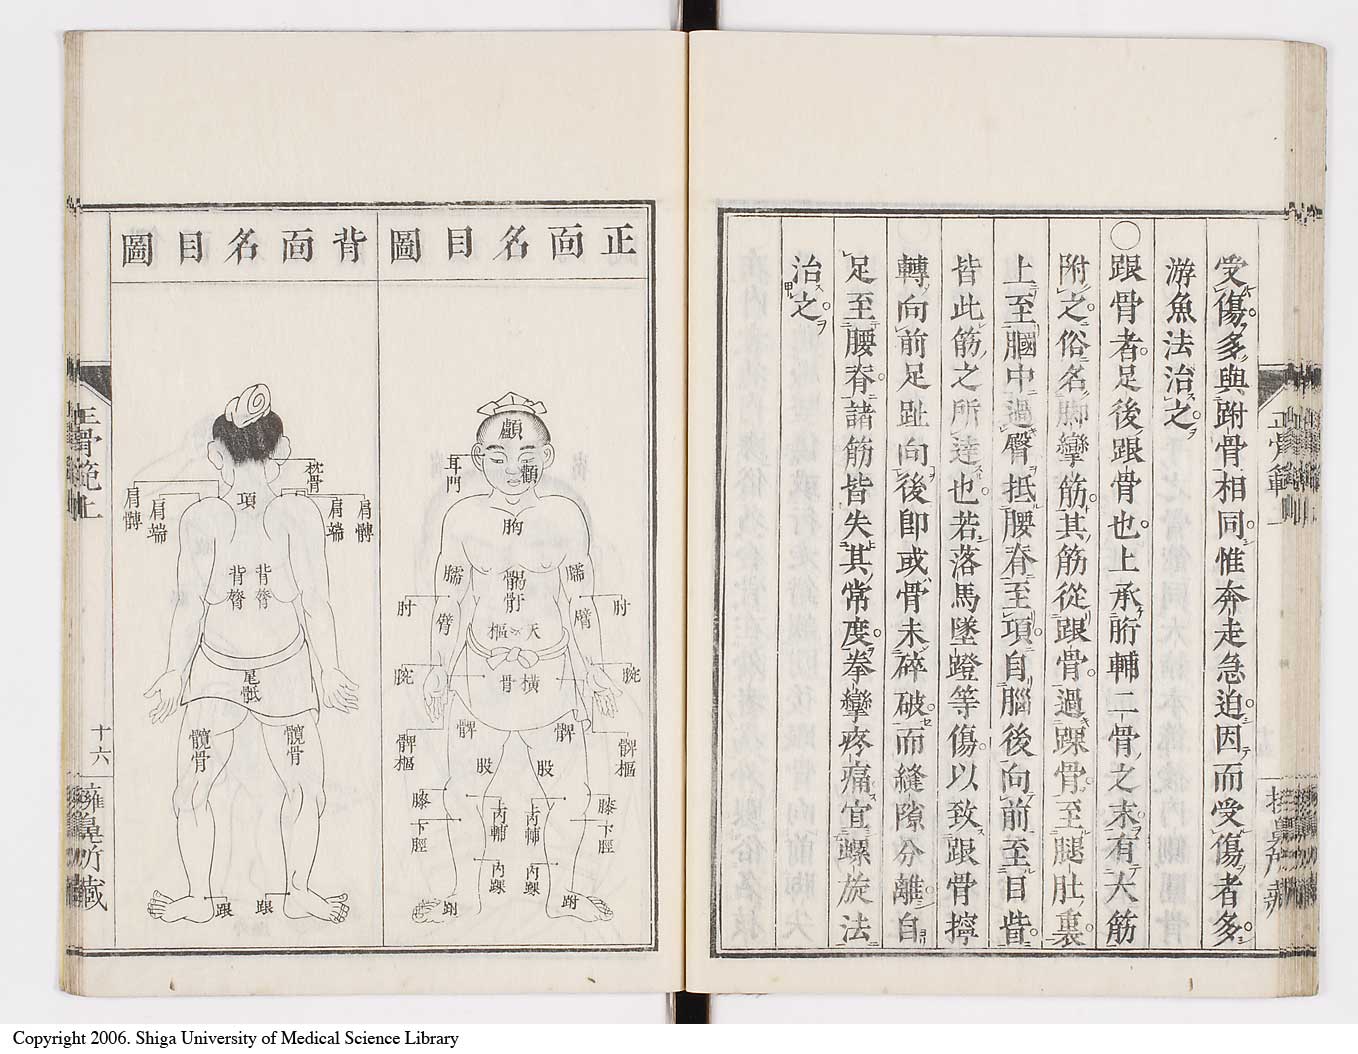 受傷多與跗骨相同惟奔走急迫因而受傷者多
游魚法治之
○跟骨者足後跟骨也上承胻輔二骨之末有大筋
附之俗名脚攣筋其筋從跟骨過踝骨至腿肚裏
上至膕中過臀抵腰脊至項自腦後向前至目眥
皆此筋之所達也若落馬墜蹬等傷以致跟骨擰
轉向前足趾向後卽或骨未碎破而縫隙分離自
足至腰脊諸筋皆失其常度拳攣疼痛宜螺旋法
治之
正面名目圖
顱
耳門
顴
胸
臑
臑
𩩲骬
肘
臂
臂
肘
天樞
腕
腕
橫骨
髀
髀
髀樞
髀樞
股
股
膝
膝
下脛
下脛
內輔
內輔
內踝
內踝
跗
跗
背面名目圖
枕骨
項
肩髆
肩端
肩端
肩髆
背膂
背膂
尾骶
髖骨
髖骨
跟
跟
正骨範上
十六
擁鼻所藏
Copyright 2006. Shiga University of Medical Science Library